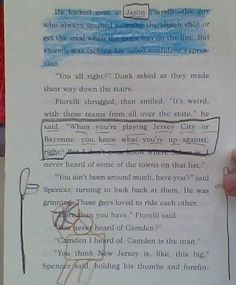 He looked over at Jason Fiorelli—the guy
who always seemed to make the clutch shot or
get the steal when the game was on the line. But
Fiorelli was lacking his usual confident expres-
sion.
"You all right?" Dunk asked as they made
their way down the stairs.
Fiorelli shrugged, then smiled. "It's weird,
with these teams from all over the state," he
said. "When you're playing Jersey City or
Bayonne, you know what you're up against,
right? But I don't
never heard of some of the towns on that list."
"You ain't been around much, have you?" said
Spencer, turning to look back at them. He was
grinning. These guys loved to ride each other.
"More than you have," Fiorelli said.
"You never heard of Camden?"
"Camden I heard of. Camden is the man."
"You think New Jersey is, like, this big,"
Spencer said, holding his thumbs and forefin-